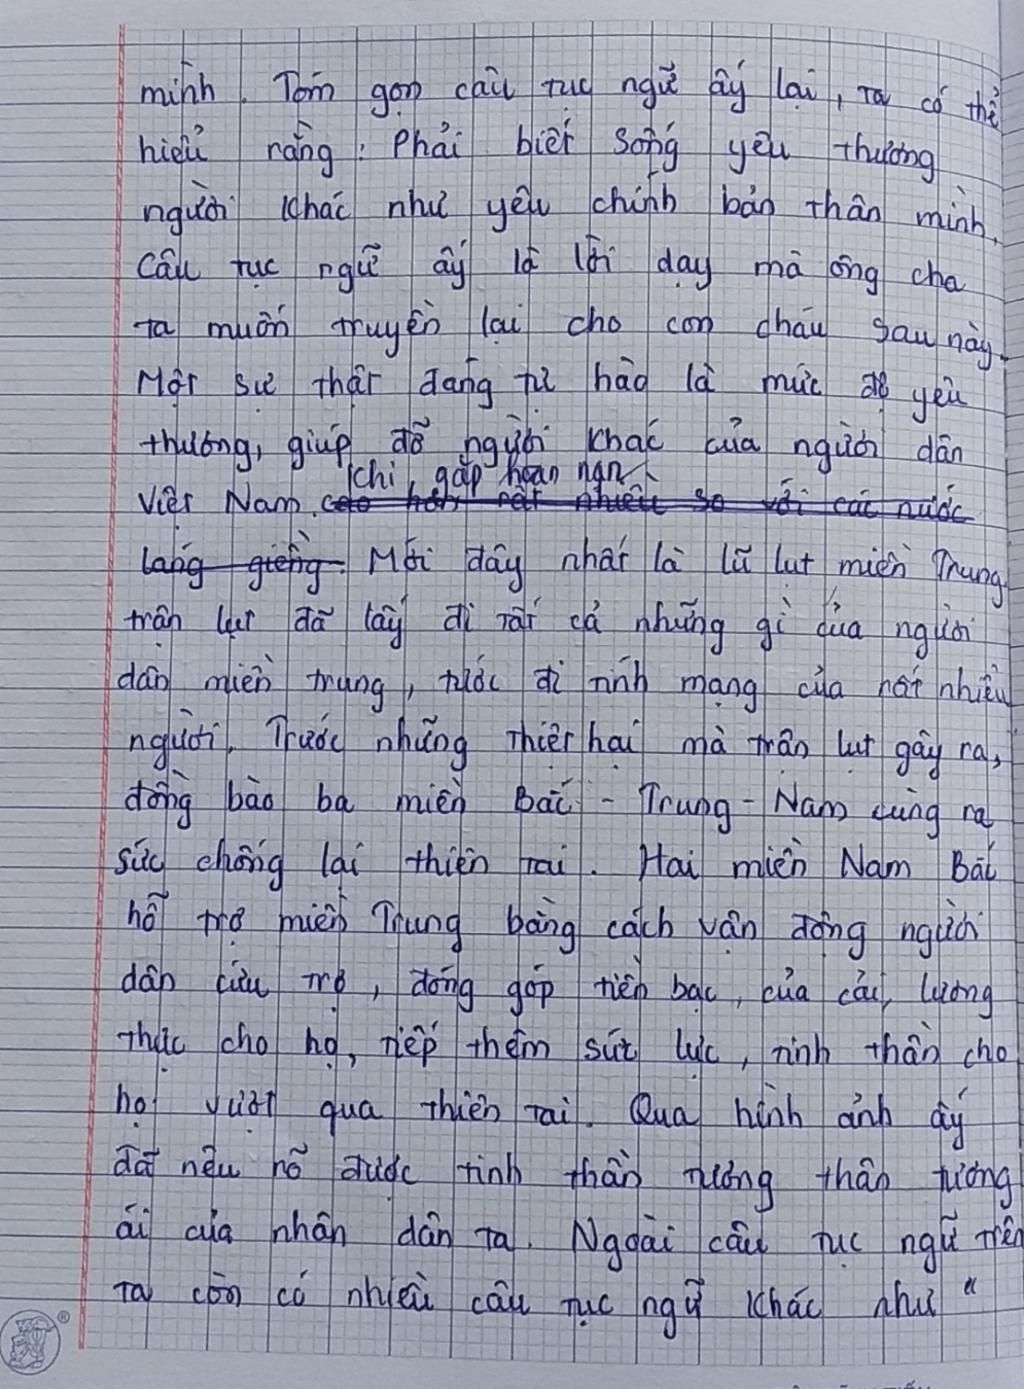 mình. Tóm gọn câu tục ngữ ấy lại, ta có thể
hiểu rằng: Phải biết sống yêu thương
người khác như yêu chính bản thân mình.
Câu tục ngữ ấy là lời dạy mà ông cha
ta muốn truyền lại cho con cháu sau này.
Một sự thật đáng tự hào là mức độ yêu
thương, giúp đỡ người khác của người dân
khi gặp hoạn nạn
Việt Nam cao hơn rất nhiều so với các nước
láng giềng. Mới đây nhất là lũ lụt miền Trung
trận lụt đã lấy đi tất cả những gì của người
dân miền trung, tước đi tính mạng của rất nhiều
người. Trước những thiệt hại mà trận lụt gây ra,
đồng bào ba miền Bắc - Trung - Nam cùng ra
sức chống lại thiên tai. Hai miền Nam Bắc
hỗ trợ miền Trung bằng cách vận động người
dân cứu trợ, đóng góp tiền bạc, của cải, lương
thực cho họ, tiếp thêm sức lực, tinh thần cho
họ vượt qua thiên tai. Qua hình ảnh ấy
đã nêu rõ được tinh thần tương thân tương
ái của nhân dân ta. Ngoài câu tục ngữ trên
ta còn có nhiều câu tục ngữ khác như "